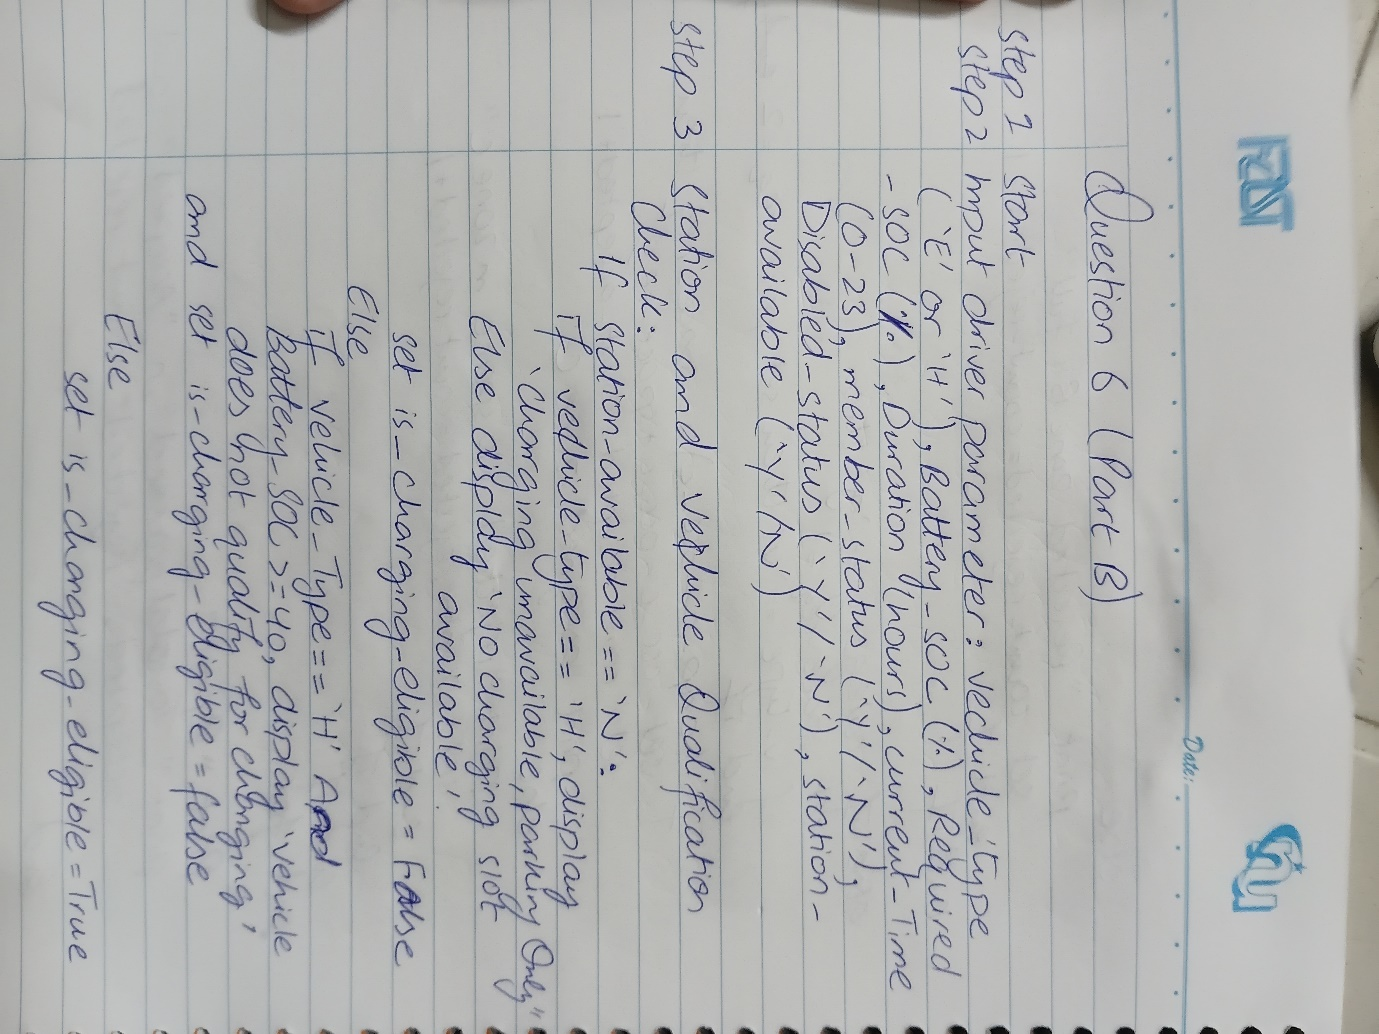 Date:
Question 6 (Part B)
Step 1 Start
Step 2 Input driver parameter: vechicle_type
('E' or 'H'), Battery_SOC (%), Required
-SOC (%), Duration (hours), current_Time
(0-23), member_status ('Y'/'N'),
Disabled_status ('Y'/'N'), station-
available ('Y'/N')
Step 3 Station and vechicle Qualification
Check:
If station_available == 'N':
If vechicle_type == 'H', display
'Charging unavailable, parking Only"
Else display 'No charging slot
available'
set is_charging_eligible = False
Else
if vehicle_Type == 'H' And
Battery_SOC >= 40, display 'vehicle
does not qualify for charging'
and set is_charging_eligible = false
Else
set is_charging_eligible = True